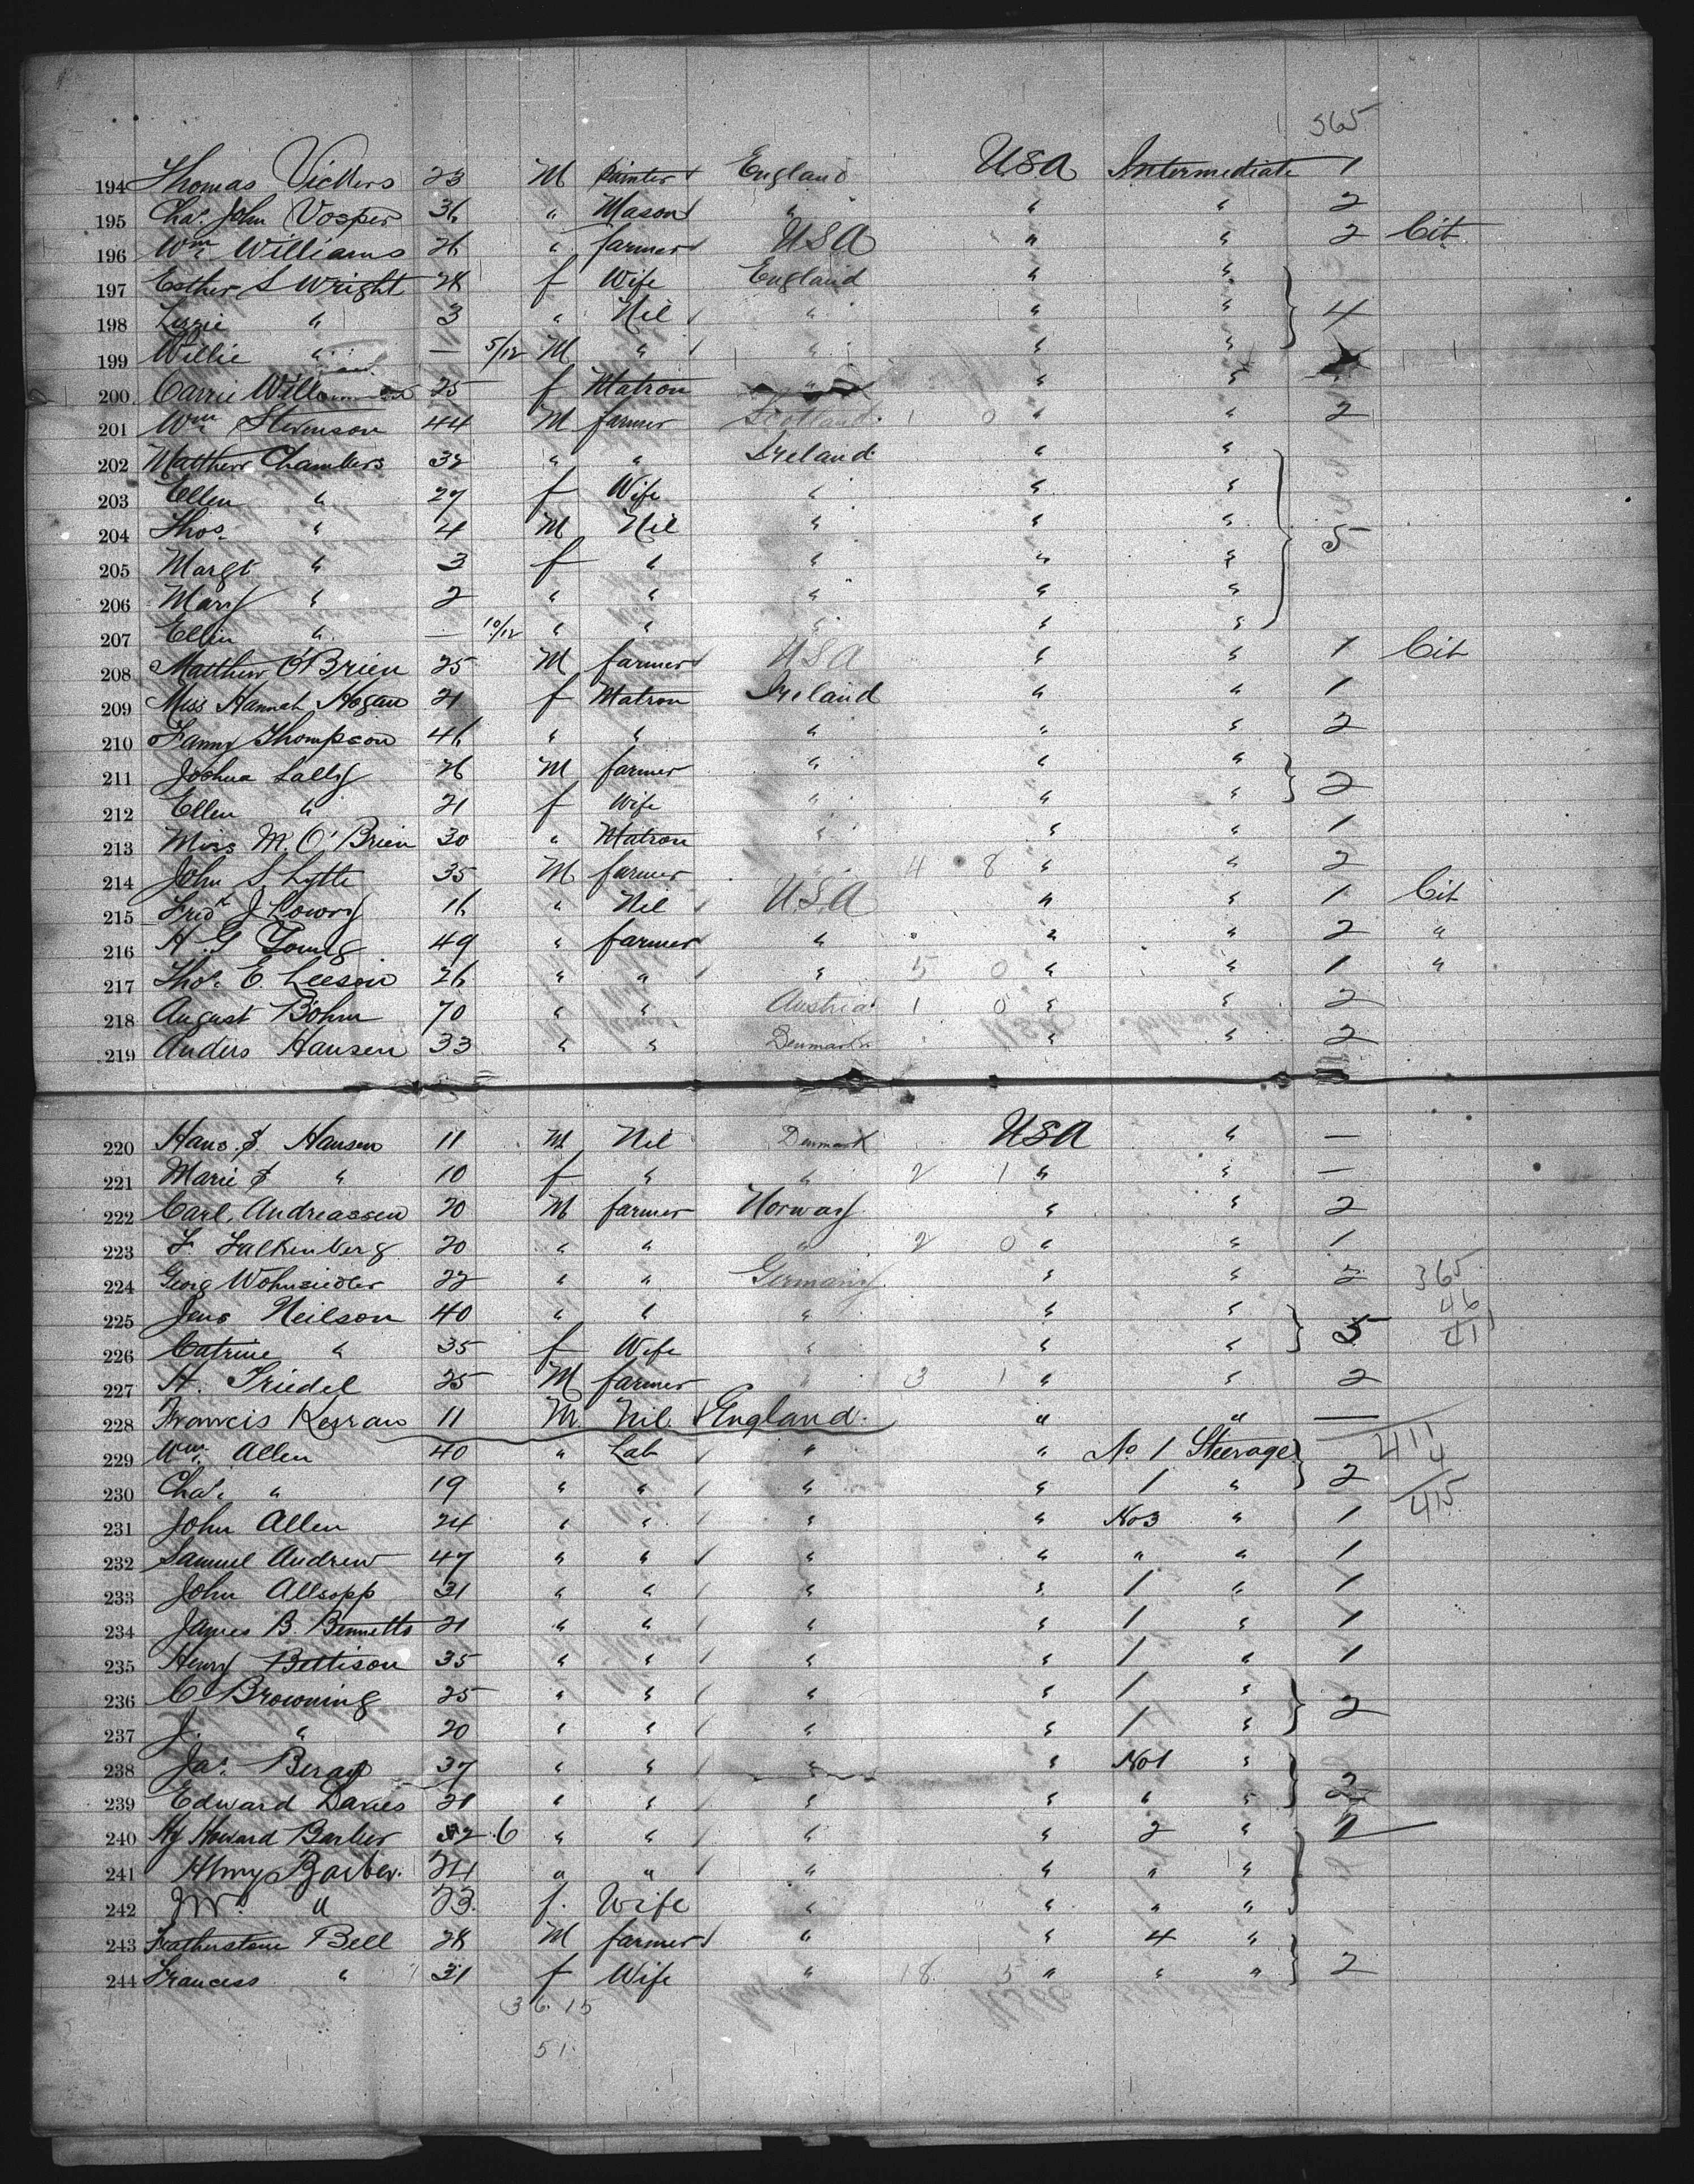 365
194 Thomas Vickers 23 M Painter England USA Intermediate 1
195 Chas. John Vosper 36 " Mason " " " 2
196 Wm Williams 26 " farmer USA " " 2 Cit
197 Esther S Wright 28 f Wife England " "
198 Lizzie " 3 " Nil " " " 4
199 Willie " — 5/12 M " " " "
200 Carrie 25 f Matron " " "
201 Wm Stevenson 44 M farmer Scotland 1 0 " " 2
202 Matthew Chambers 32 " " Ireland " "
203 Ellen " 27 f Wife " " "
204 Thos. " 4 M Nil " " " 5
205 Margt " 3 f " " " "
206 Mary " 2 " " " " "
207 Ellen " — 10/12 " " " " "
208 Matthew O'Brien 25 M farmer USA " " 1 Cit
209 Miss Hannah Hogan 21 f Matron Ireland " " 1
210 Fanny Thompson 46 " " " " " 2
211 Joshua Lally 26 M farmer " " " 2
212 Ellen " 21 f Wife " " "
213 Miss M. O'Brien 30 " Matron " " " 1
214 John S. Lytle 35 M farmer " 4 8 " " 2
215 Fredk J Lowry 16 " Nil USA " " 1 Cit
216 H. G Young 49 " farmer " " " 2 "
217 Thos. E Leeson 26 " " " 5 0 " " 1 "
218 August Böhm 70 " " Austria 1 0 " " 2
219 Anders Hansen 33 " " Denmark " " 2
220 Hans Hansen 11 M Nil Denmark USA " —
221 Marie " 10 f " " 2 1 " " —
222 Carl Andreassen 20 M farmer Norway " " 2
223 F. Falkenberg 20 " " " 2 0 " " 1
224 Georg Wohnsiedler 22 " " Germany " " 2 365
225 Jens Neilson 40 " " " " " 5 46
226 Catrine " 35 f Wife " " " 411
227 H. Friedel 25 M farmer " 3 1 " " 2
228 Francis 11 M Nil England " " —
229 Wm. Allen 40 " Lab " " No 1 Steerage 411
230 Chas. " 19 " " " " 1 " 2 4
231 John Allen 24 " " " " No 3 " 1 415
232 Samuel Andrew 47 " " " " " " 1
233 John Allsopp 31 " " " " 1 " 1
234 James B. Bennetts 21 " " " " 1 " 1
235 Henry Bettison 35 " " " " 1 " 1
236 C Browning 25 " " " " 1 " 2
237 J. " 20 " " " " 1 "
238 Jas. 37 " " " " No 1 "
239 Edward Davies 21 " " " " " " 2
240 Hy Howard Barber 6 " " " " 2 "
241 Henry Barber. 24 " " " " " "
242 " 23. f. Wife " " " "
243 Featherstone Bell 28 M farmer " " 4 "
244 Francess " 31 f Wife " 18 5 " " " 2
36 15
51